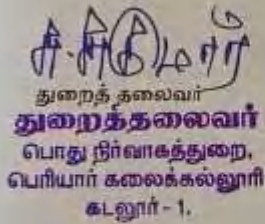 துறைத் தலைவர்
துறைத்தலைவர்
பொது நிர்வாகத்துறை,
பெரியார் கலைக்கல்லூரி
கடலூர் - 1.